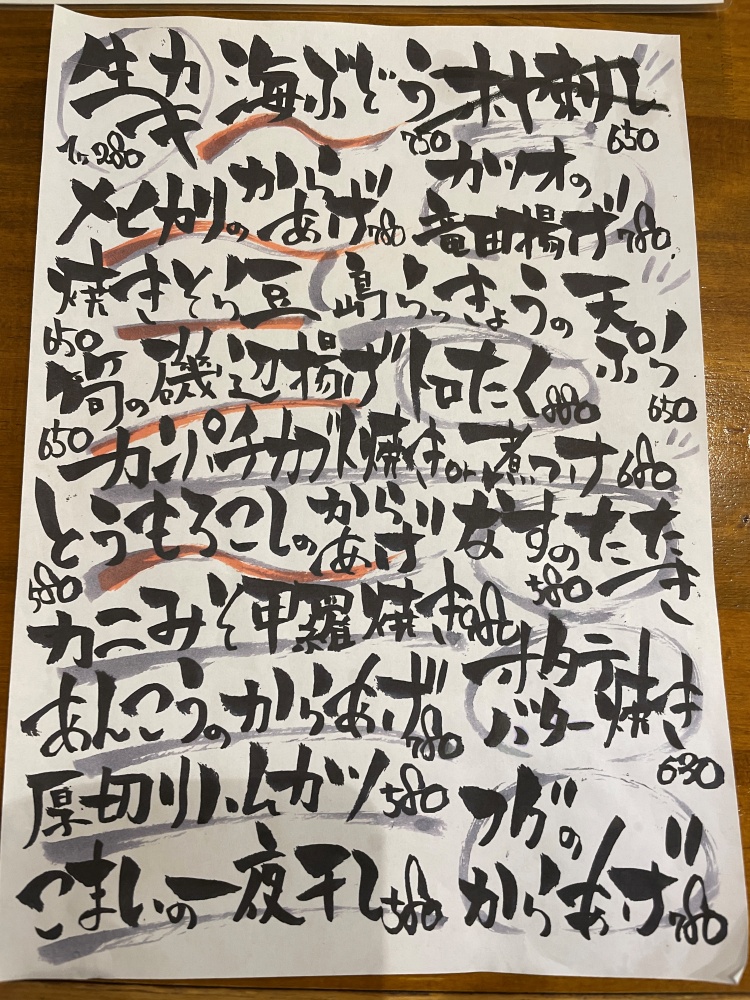 生カキ 1ヶ280
海ぶどう 750
ホヤ刺し 650
メヒカリのからあげ 780
カツオの竜田揚げ 780
焼きそら豆 650
島らっきょうの天ぷら 650
筍の磯辺揚げ 650
トロたく 880
カンパチカブト焼きor煮つけ 680
とうもろこしのからあげ 580
なすのたたき 580
カニみそ甲羅焼き 980
ホタテバター焼き 630
あんこうのからあげ 780
厚切りハムカツ 580
フグのからあげ 780
こまいの一夜干し 580